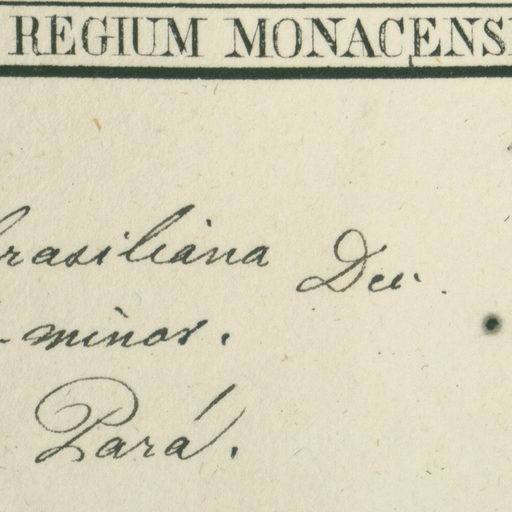 REGIUM MONACENS
brasiliana Dec.
-minor.
Pará.